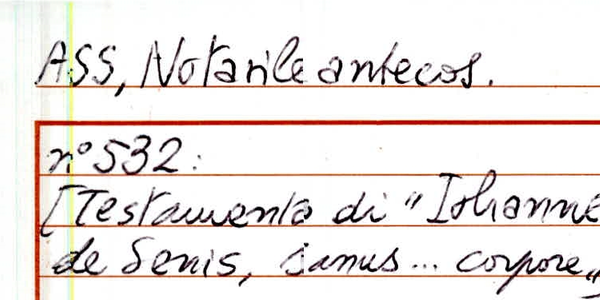 ASS, Notarile antecos.
n° 532:
[Testamento di "Iohanne
de Senis, sanus... corpore"